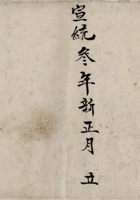 宣統叁年新正月 立